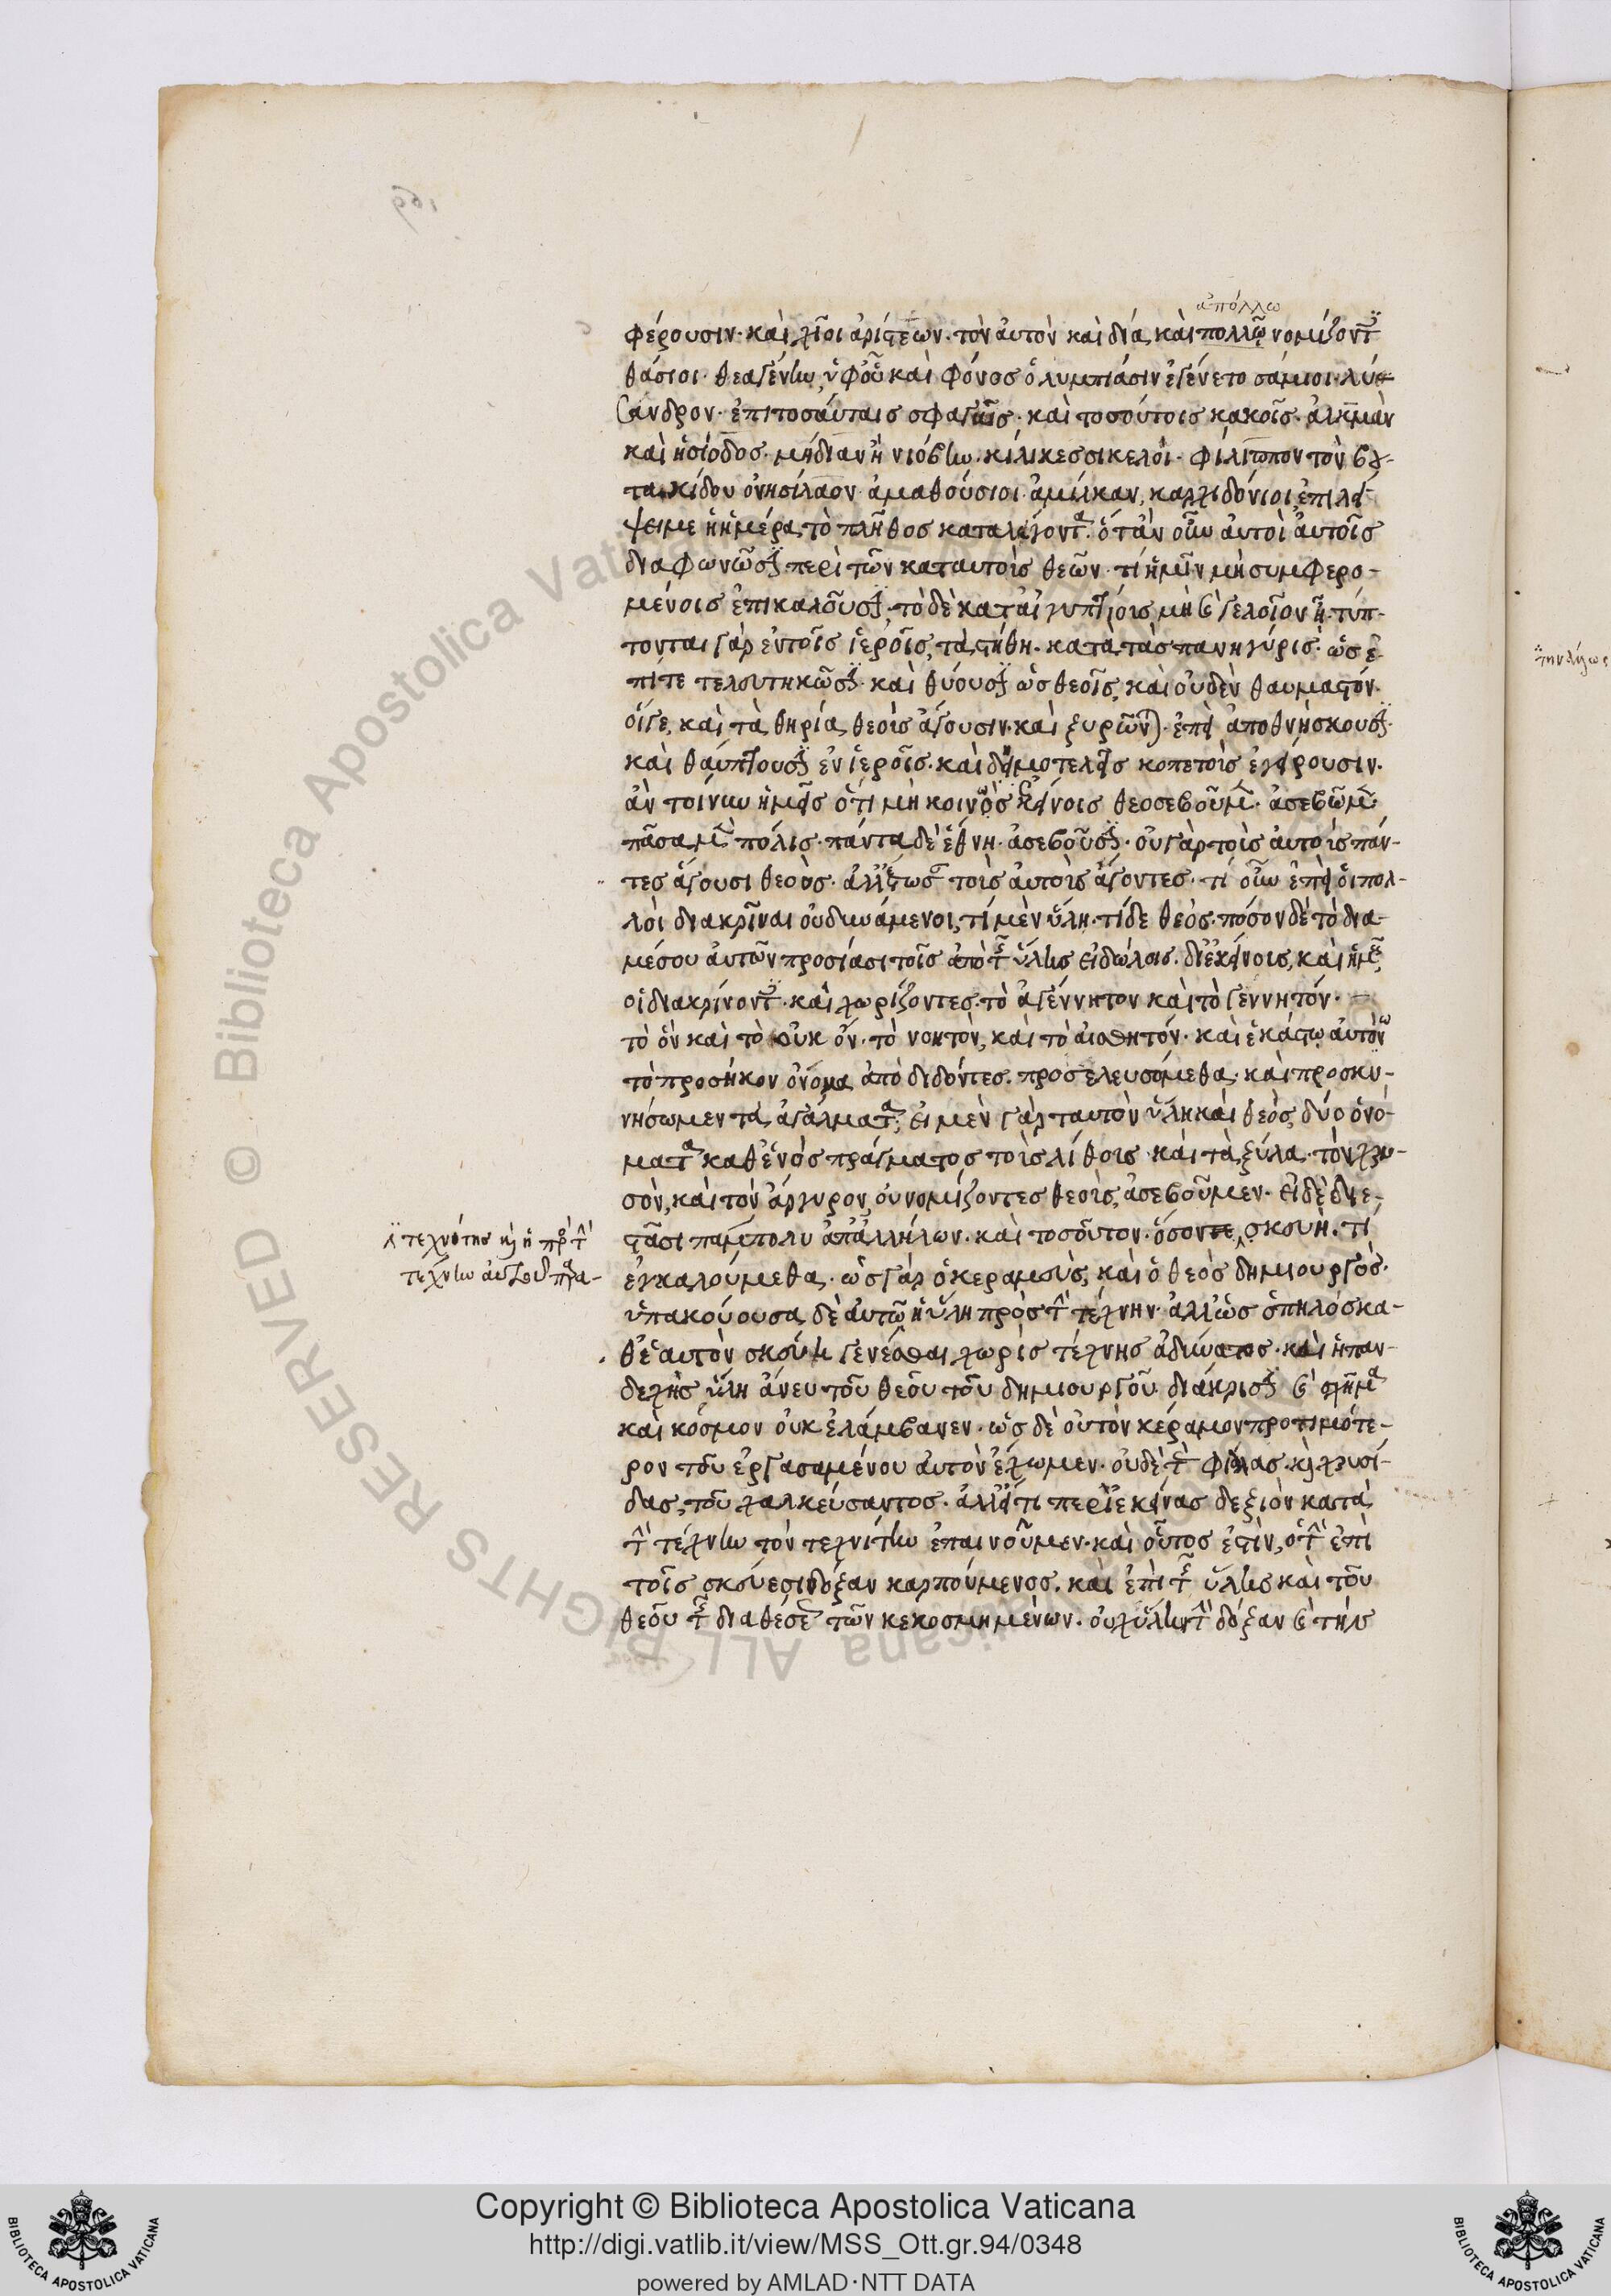 ἀπόλλω
φέρουσιν· καὶ χῖοι ἀριστέων· τὸν ἀυτὸν καὶ δία, καὶ πολλῶ νομίζοντες
θάσιοι· θεαγένην, ὑφ' οὗ καὶ φόνος ὀλυμπιάσιν ἐγένετο σάμιοι· λύ-
σανδρον· ἐπὶ τοσάυταις σφαγαῖς· καὶ τοσούτοις κακοῖς· ἀλκμὰν
καὶ ἡσίοδος· μήδιαν ἢ νιόβην· κίλικες σικελοὶ· φίλιππον τὸν βου-
τακίδου ὀνησίλαον ἀμαθούσιοι· ἀμίλκαν, καρχιδόνιοι ἐπιλεί-
ψει με ἡ ἡμέρα, τὸ πλῆθος καταλέγοντα. ὅτ' ἂν οὖν ἀυτοὶ ἀυτοῖς
διαφωνῶσι περὶ τῶν κατ' αυτοὺς θεῶν· τί ἡμῖν μὴ συμφερο-
μένοις ἐπικαλοῦσι, τὸ δὲ κατ' ἀιγυπτίους μὴ καὶ γελοῖον ἦ· τύπ-
τονται γὰρ ἐν τοῖς ἱεροῖς, τὰ στήθη· κατὰ τὰς πανηγύρις· ὡς ἐ-
πί τετελευτηκῶσι· καὶ θύουσι ὡς θεοῖς, καὶ οὐδὲν θαυμαστόν·
οἵγε, καὶ τὰ θηρία, θεοὺς ἄγουσιν· καὶ ξυρῶνται· ἐπεὶ ἀποθνήσκουσι·
καὶ θάπτουσι ἐν ἱεροῖς· καὶ δημοτελεῖς κοπετοὺς ἐγείρουσιν·
ἂν τοίνυν ἡμεῖς ὅτι μὴ κοινῶς ἐκείνοις θεοσεβοῦμεν· ἀσεβῶμεν·
πᾶσαι μὲν πόλις· πάντα δὲ ἔθνη· ἀσεβοῦσι· οὐ γὰρ τοὺς ἀυτοὺς πάν-
τες ἄγουσι θεοὺς· τοὺς ἀυτοὺς ἄγοντες· τί οὖν ἐπεὶ ὁι πολ-
λὸι διακρῖναι οὐ δυνάμενοι, τί μὲν ὕλη· τί δε θεός· πόσον δὲ τὸ δια-
μέσου ἀυτῶν προσίασι τοῖς ἀπὸ τῆς ὕλης εἰδώλοις· δι' ἐκείνοις, καὶ ἡμεῖς
οἱ διακρίνοντες· καὶ χωρίζοντες· τὸ ἀγέννητον καὶ τὸ γεννητόν·
τὸ ὂν καὶ τὸ οὐκ ὄν· τὸ νοητὸν, καὶ τὸ ἀισθητόν· καὶ ἑκάστω ἀυτὸν
τὸ προσήκον ὄνομα ἀποδιδόντες· προσελευσόμεθα· καὶ προσκυ-
νήσωμεν τὰ ἀγάλματα; ἐι μὲν γὰρ ταυτὸν ὕλη καὶ θεὸς, δύο ὀνό-
ματα καθ' ἑνὸς πράγματος τοὺς λίθους καὶ τὰ ξύλα· τὸν χρυ-
σὸν, καὶ τὸν ἄργυρον, οὐ νομίζοντες θεοὺς, ἀσεβοῦμεν· ἐι δὲ διε-
στᾶσι πάμπολυ ἀπ' ἀλλήλων· καὶ τοσοῦτον· ὅσον σκευὴ· τί
ἐγκαλούμεθα· ὡς γὰρ ὁ κεραμεὺς, καὶ ὁ θεὸς δημιουργὸς·
ὑπακούουσα δὲ ἀυτῶ ἡ ὕλη πρὸς τὴν τέχνην· ἀλλ' ὡς ὁ πηλός κα-
θ' ἑαυτὸν σκεύη γενέσθαι χωρὶς τέχνης ἀδύνατος· καὶ ἡ παν-
δεχὴς ὕλη ἄνευ τοῦ θεοῦ τοῦ δημιουργοῦ διάκρισιν καὶ σχῆμα
καὶ κόσμον οὐκ ἐλάμβανεν· ὡς δὲ οὐ τὸν κέραμον προτιμότε-
ρον τοῦ ἐργασαμένου ἀυτὸν ἔχωμεν· οὐδὲ τὰς φιάλας καὶ χρυσί-
δας, τοῦ χαλκεύσαντος· ἀλλ' εἴ τι περὶ ἐκείνας δεξιὸν κατὰ
τὴν τέχνην τὸν τεχνίτην ἐπαινοῦμεν· καὶ οὗτος ἐστὶν, ὁ τὴν ἐπὶ
τοῖς σκεύεσι δόξαν καρπούμενος· καὶ ἐπὶ τῆς ὕλης καὶ τοῦ
θεοῦ τῆς διαθέσεως τῶν κεκοσμημένων· οὐχ ὕλην τὴν δόξαν καὶ τὴν
τεχνότης καὶ ἡ πρὸς τὴν
τέχνην